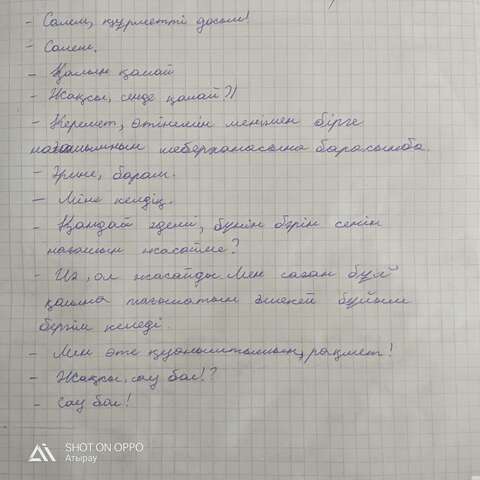 - Сәлем, құрметті досым!
- Сәлем.
- Қалың қалай
- Жақсы, сенде қалай?!
- Керемет, өтінемін менімен бірге
нағашымның шеберханасына барасыңба.
- Әрине, барам.
- Міне келдік.
- Қандай әдемі, бұның бәрін сенің
нағашың жасайма?
- Иә, ол жасайды Мен саған бұл
қолыңа тағылатын әшекей бұйым
бергім келеді.
- Мен өте қуаныштымын, рақмет!
- Жақсы, сау бол!?
- Сау бол!
SHOT ON OPPO
Атырау